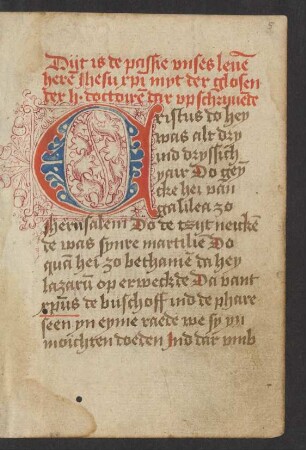 Dijt is de passie vnses leuē
heren Jhesu xpi myt der glosen
der h. doctoirē dar vp schryuēde
Cristus do hey
was alt dry
ind dryssich
yair Do gey
cke hei van
galilea zo
Jherusalem Do de tzijt neuckē
de was synre martilie Do
quā hei zo bethanien da hey
lazarū op erweckde Da vant
de buschoff ind de phare
seen yn eyme raede we sy yn
moichten doeden Ind dar vmb